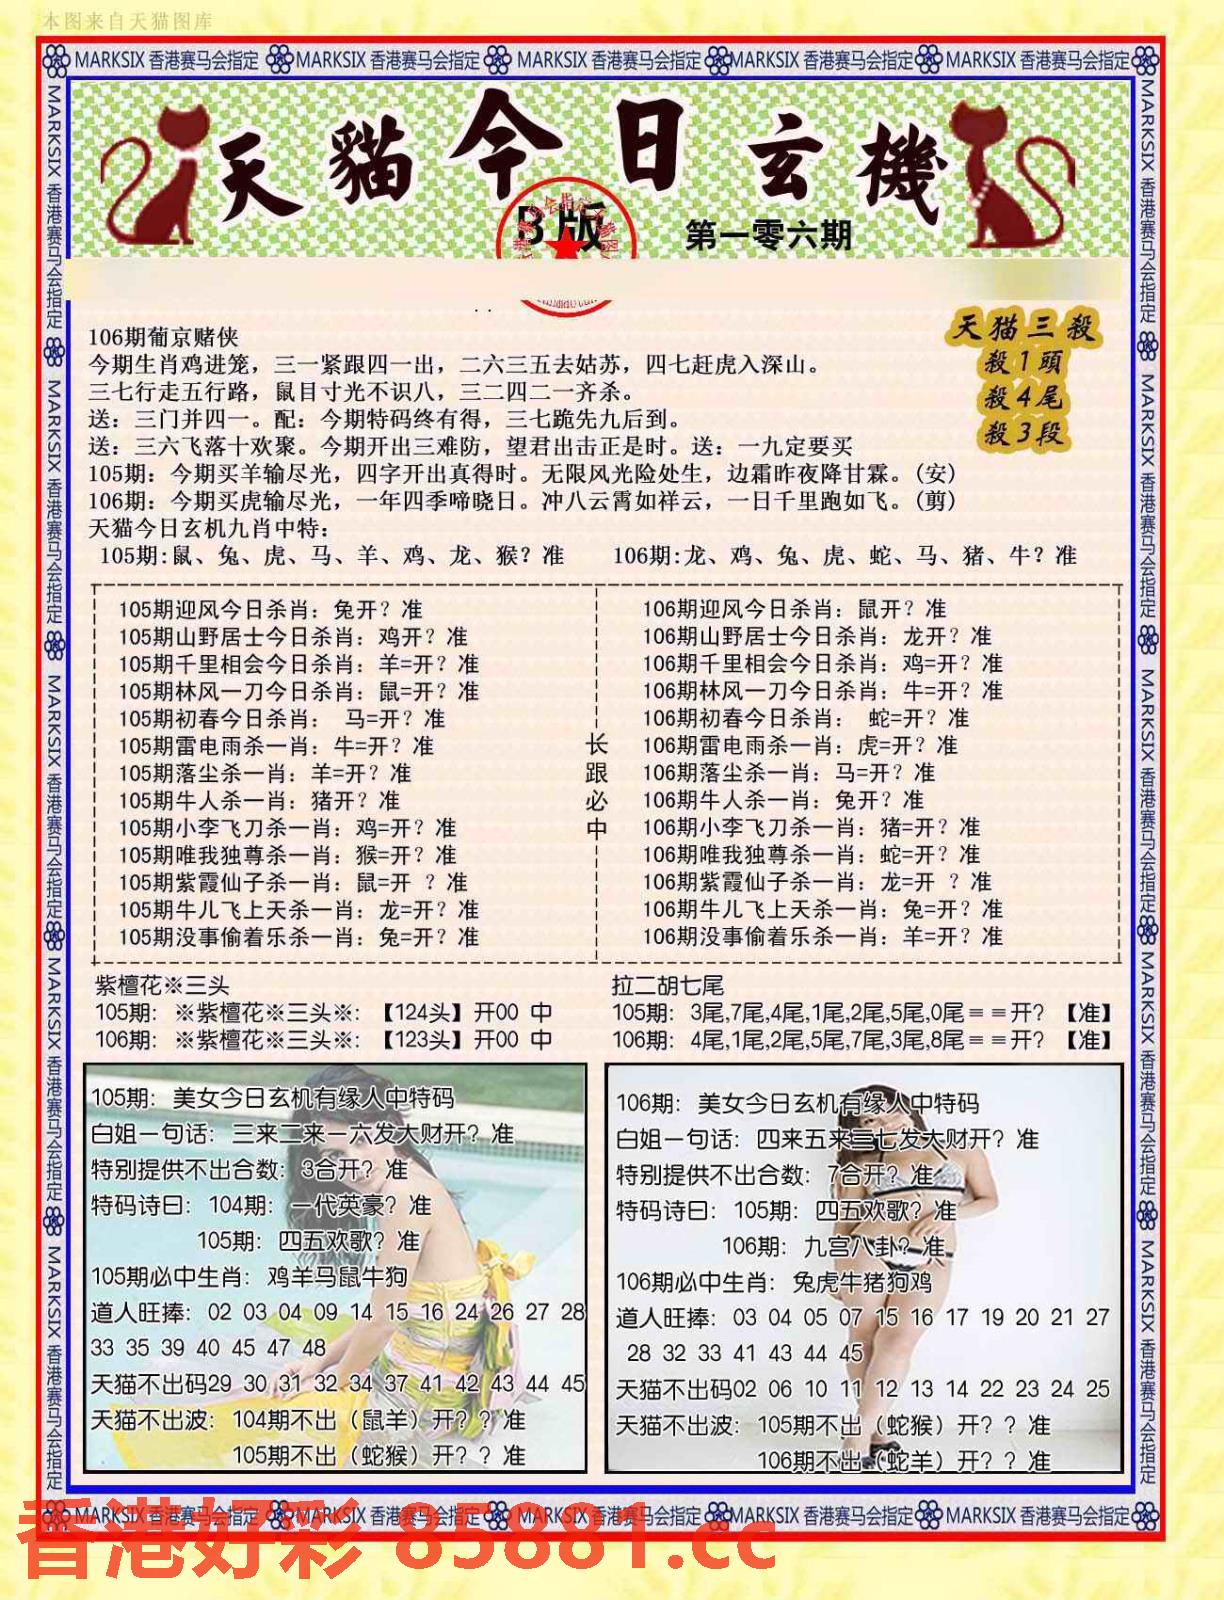 本图来自天猫图库
MARKSIX 香港赛马会指定 MARKSIX 香港赛马会指定 MARKSIX 香港赛马会指定 MARKSIX 香港赛马会指定 MARKSIX 香港赛马会指定
MARKSIX 香港赛马会指定 MARKSIX 香港赛马会指定 MARKSIX 香港赛马会指定 MARKSIX 香港赛马会指定 MARKSIX 香港赛马会指定
天貓今日玄機
B版
第一零六期
天猫三殺
殺1頭
殺4尾
殺3段
106期葡京赌侠
今期生肖鸡进笼，三一紧跟四一出，二六三五去姑苏，四七赶虎入深山。
三七行走五行路，鼠目寸光不识八，三二四二一齐杀。
送：三门并四一。配：今期特码终有得，三七跪先九后到。
送：三六飞落十欢聚。今期开出三难防，望君出击正是时。送：一九定要买
105期：今期买羊输尽光，四字开出真得时。无限风光险处生，边霜昨夜降甘霖。(安)
106期：今期买虎输尽光，一年四季啼晓日。冲八云霄如祥云，一日千里跑如飞。(剪)
天猫今日玄机九肖中特：
105期:鼠、兔、虎、马、羊、鸡、龙、猴？准
106期:龙、鸡、兔、虎、蛇、马、猪、牛？准
105期迎风今日杀肖：兔开？准
105期山野居士今日杀肖：鸡开？准
105期千里相会今日杀肖：羊=开？准
105期林风一刀今日杀肖：鼠=开？准
105期初春今日杀肖： 马=开？准
105期雷电雨杀一肖：牛=开？准
105期落尘杀一肖：羊=开？准
105期牛人杀一肖：猪开？准
105期小李飞刀杀一肖：鸡=开？准
105期唯我独尊杀一肖：猴=开？准
105期紫霞仙子杀一肖：鼠=开 ？准
105期牛儿飞上天杀一肖：龙=开？准
105期没事偷着乐杀一肖：兔=开？准
长跟必中
106期迎风今日杀肖：鼠开？准
106期山野居士今日杀肖：龙开？准
106期千里相会今日杀肖：鸡=开？准
106期林风一刀今日杀肖：牛=开？准
106期初春今日杀肖： 蛇=开？准
106期雷电雨杀一肖：虎=开？准
106期落尘杀一肖：马=开？准
106期牛人杀一肖：兔开？准
106期小李飞刀杀一肖：猪=开？准
106期唯我独尊杀一肖：蛇=开？准
106期紫霞仙子杀一肖：龙=开 ？准
106期牛儿飞上天杀一肖：兔=开？准
106期没事偷着乐杀一肖：羊=开？准
紫檀花※三头
105期：※紫檀花※三头※：【124头】开00 中
106期：※紫檀花※三头※：【123头】开00 中
拉二胡七尾
105期：3尾,7尾,4尾,1尾,2尾,5尾,0尾＝＝开？【准】
106期：4尾,1尾,2尾,5尾,7尾,3尾,8尾＝＝开？【准】
105期：美女今日玄机有缘人中特码
白姐一句话：三来二来一六发大财开？准
特别提供不出合数：3合开？准
特码诗曰：104期：一代英豪？准
105期：四五欢歌？准
105期必中生肖：鸡羊马鼠牛狗
道人旺捧：02 03 04 09 14 15 16 24 26 27 28
33 35 39 40 45 47 48
天猫不出码29 30 31 32 34 37 41 42 43 44 45
天猫不出波：104期不出（鼠羊）开？？准
105期不出（蛇猴）开？？准
106期：美女今日玄机有缘人中特码
白姐一句话：四来五来三七发大财开？准
特别提供不出合数：7合开？准
特码诗曰：105期：四五欢歌？准
106期：九宫八卦？准
106期必中生肖：兔虎牛猪狗鸡
道人旺捧：03 04 05 07 15 16 17 19 20 21 27
28 32 33 41 43 44 45
天猫不出码02 06 10 11 12 13 14 22 23 24 25
天猫不出波：105期不出（蛇猴）开？？准
106期不出（蛇羊）开？？准
MARKSIX 香港赛马会指定 MARKSIX 香港赛马会指定 MARKSIX 香港赛马会指定 MARKSIX 香港赛马会指定 MARKSIX 香港赛马会指定
MARKSIX 香港赛马会指定 MARKSIX 香港赛马会指定 MARKSIX 香港赛马会指定 MARKSIX 香港赛马会指定 MARKSIX 香港赛马会指定
香港好彩 85881.cc